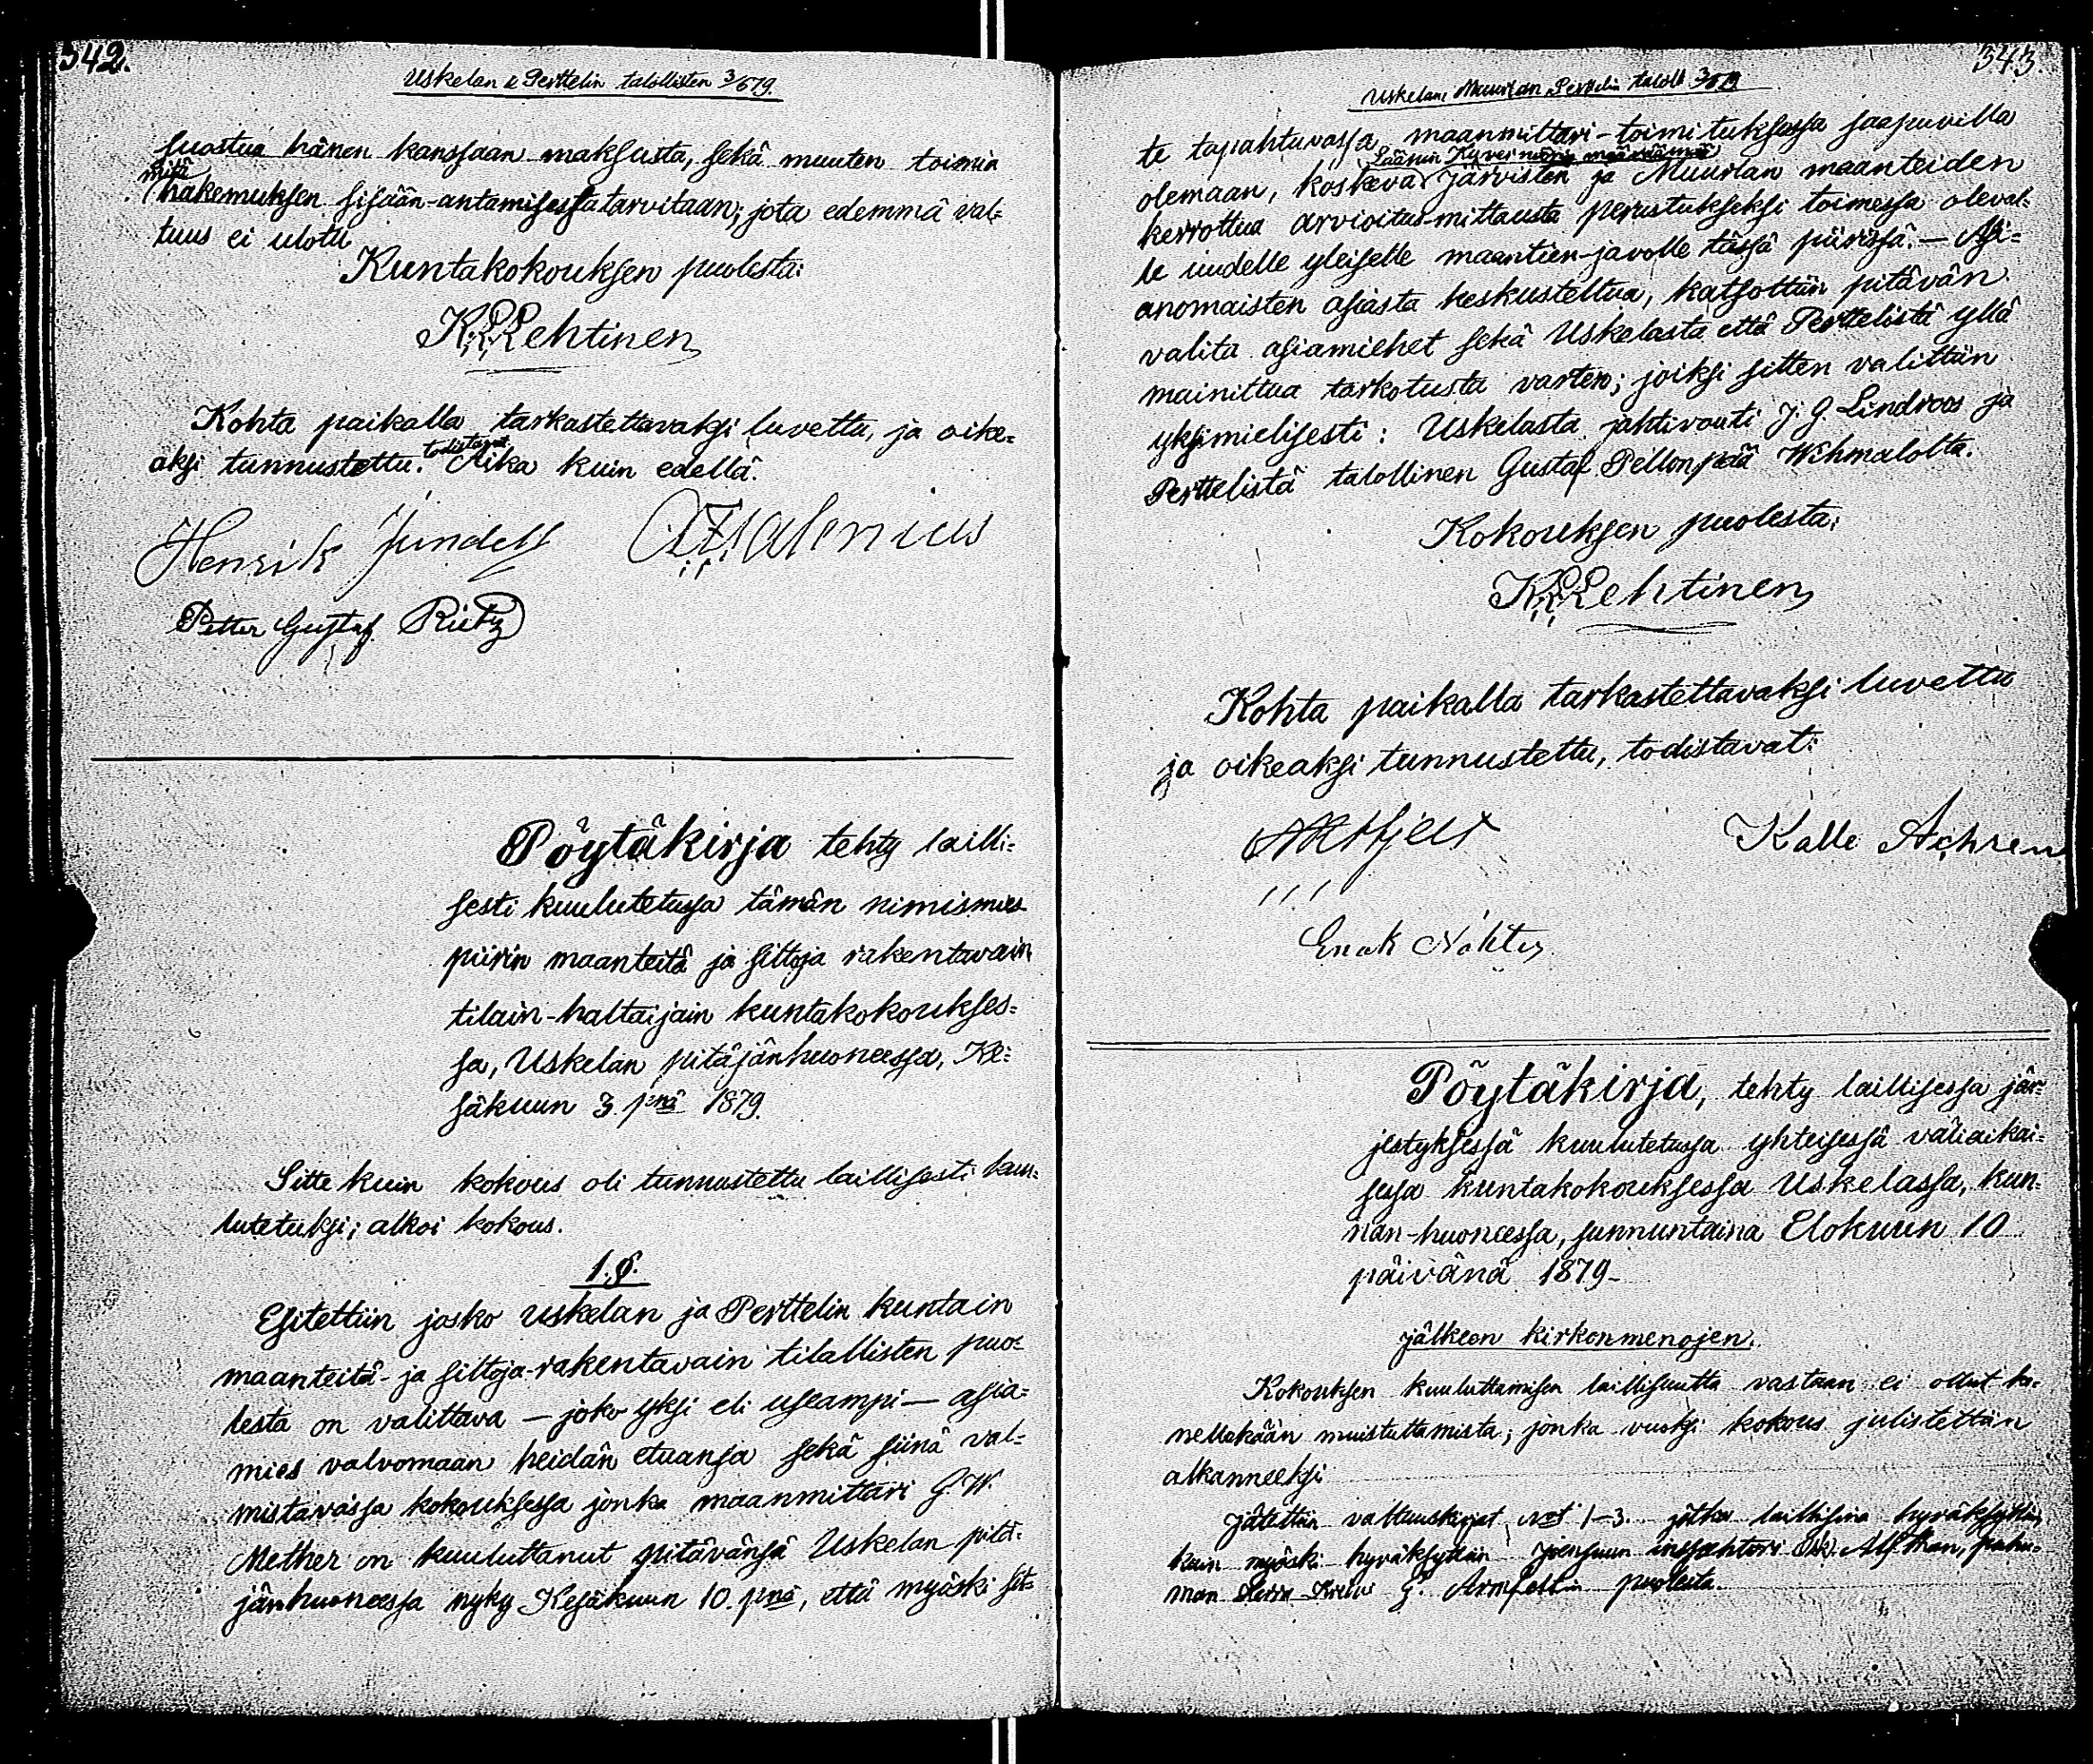 342.
Uskelan & Perttelin talollisten 3/6 79.
suostua hänen kanssaan maksusta, sekä muuten toimia
mitä
hakemuksen sisään-antamisessa tarvitaan; jota edemmä val-
tuus ei ulotu
Kuntakokouksen puolesta:
K. Lehtinen
Kohta paikalla tarkastettavaksi luvettu, ja oike-
todistavat
aksi tunnustettu. Aika kuin edellä.
Henrik Jundell
Petter Gustaf
Pöytäkirja tehty lailli-
sesti kuulutetussa tämän nimismies
piirin maanteitä ja siltoja rakentavain
tilain-haltaijain kuntakokoukses-
sa, Uskelan pitäjänhuoneessa, Ke-
säkuun 3 pnä 1879.
Sitte kuin kokous oli tunnustettu laillisesti kuu-
lutetuksi; alkoi kokous.
1.§.
Esitettiin josko Uskelan ja Perttelin kuntain
maanteitä- ja siltoja-rakentavain tilallisten puo-
lesta on valittava — joko yksi eli useampi — asia-
mies valvomaan heidän etuansa sekä siinä val-
mistavassa kokouksessa jonka maanmittari G. W.
Mether on kuuluttanut pitävänsä Uskelan pitä-
jänhuoneessa nyky Kesäkuun 10. pnä, että myöski sit-
343.
Uskelan, Muurlan Perttelin taloll 3/6 79
te tapahtuvassa maanmittari-toimituksessa saapuvilla
Läänin Kuvernöörin määräämää
olemaan, koskeva Järvisten ja Muurlan maanteiden
kerrottua arvioitus-mittausta perustukseksi toimessa oleval-
le uudelle yleiselle maantien-javolle tässä piirissä. — Asi-
anomaisten asiasta keskusteltua, katsottiin pitävän
valita asiamiehet sekä Uskelasta että Perttelistä yllä
mainittua tarkotusta varten; joiksi sitten valittiin
yksimielisesti: Uskelasta jahtivouti J. G. Lindroos ja
Perttelistä talollinen Gustaf Pellonpää Wihmalolta.
Kokouksen puolesta:
K. Lehtinen
Kohta paikalla tarkastettavaksi luvettu
ja oikeaksi tunnustettu, todistavat:
Kalle Achren
Enok Nohty
Pöytäkirja, tehty laillisessa jär-
jestyksessä kuulutetussa yhteisessä väliaikai-
sessa kuntakokouksessa Uskelassa, kun-
nan-huoneessa, sunnuntaina Elokuun 10
päivänä 1879-
jälkeen kirkonmenojen.
Kokouksen kuuluttamisen laillisuutta vastaan ei ollut ke-
nelläkään muistuttamista; jonka vuoksi kokous julistettiin
alkanneeksi
Jätettiin valtuuskirjat Not 1-3. jotka laillisina hyväksyttiin,
kuin myöski hyväksyttiin Joensuun inspehtori Alfthan, puhu-
man Herra G. Armfeltin puolesta.